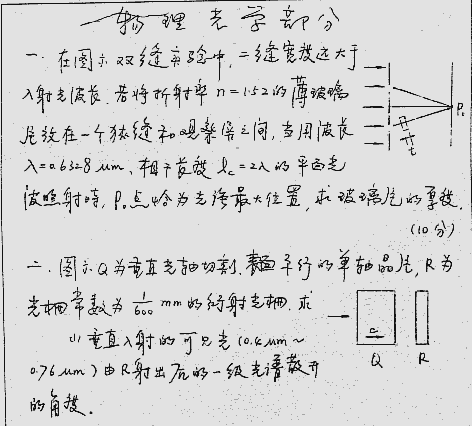 物理光学部分
一. 在图示双缝实验中, 二缝宽度远大于
入射光波长. 若将折射率 n=1.52的薄玻璃
片放在一个狭缝和观察屏之间, 当用波长
λ=0.6328 μm, 相干长度 lc=2λ 的平面光
波照射时, P。点恰为光强最大位置, 求玻璃片的厚度.
(10分)
P。
t
二. 图示Q为垂直光轴切割, 表面平行的单轴晶片, R为
光栅常数为 1/600 mm的衍射光栅. 求
(1) 垂直入射的可见光(0.4μm~
0.76μm)由R射出后的一级光谱散开
的角度.
Q R